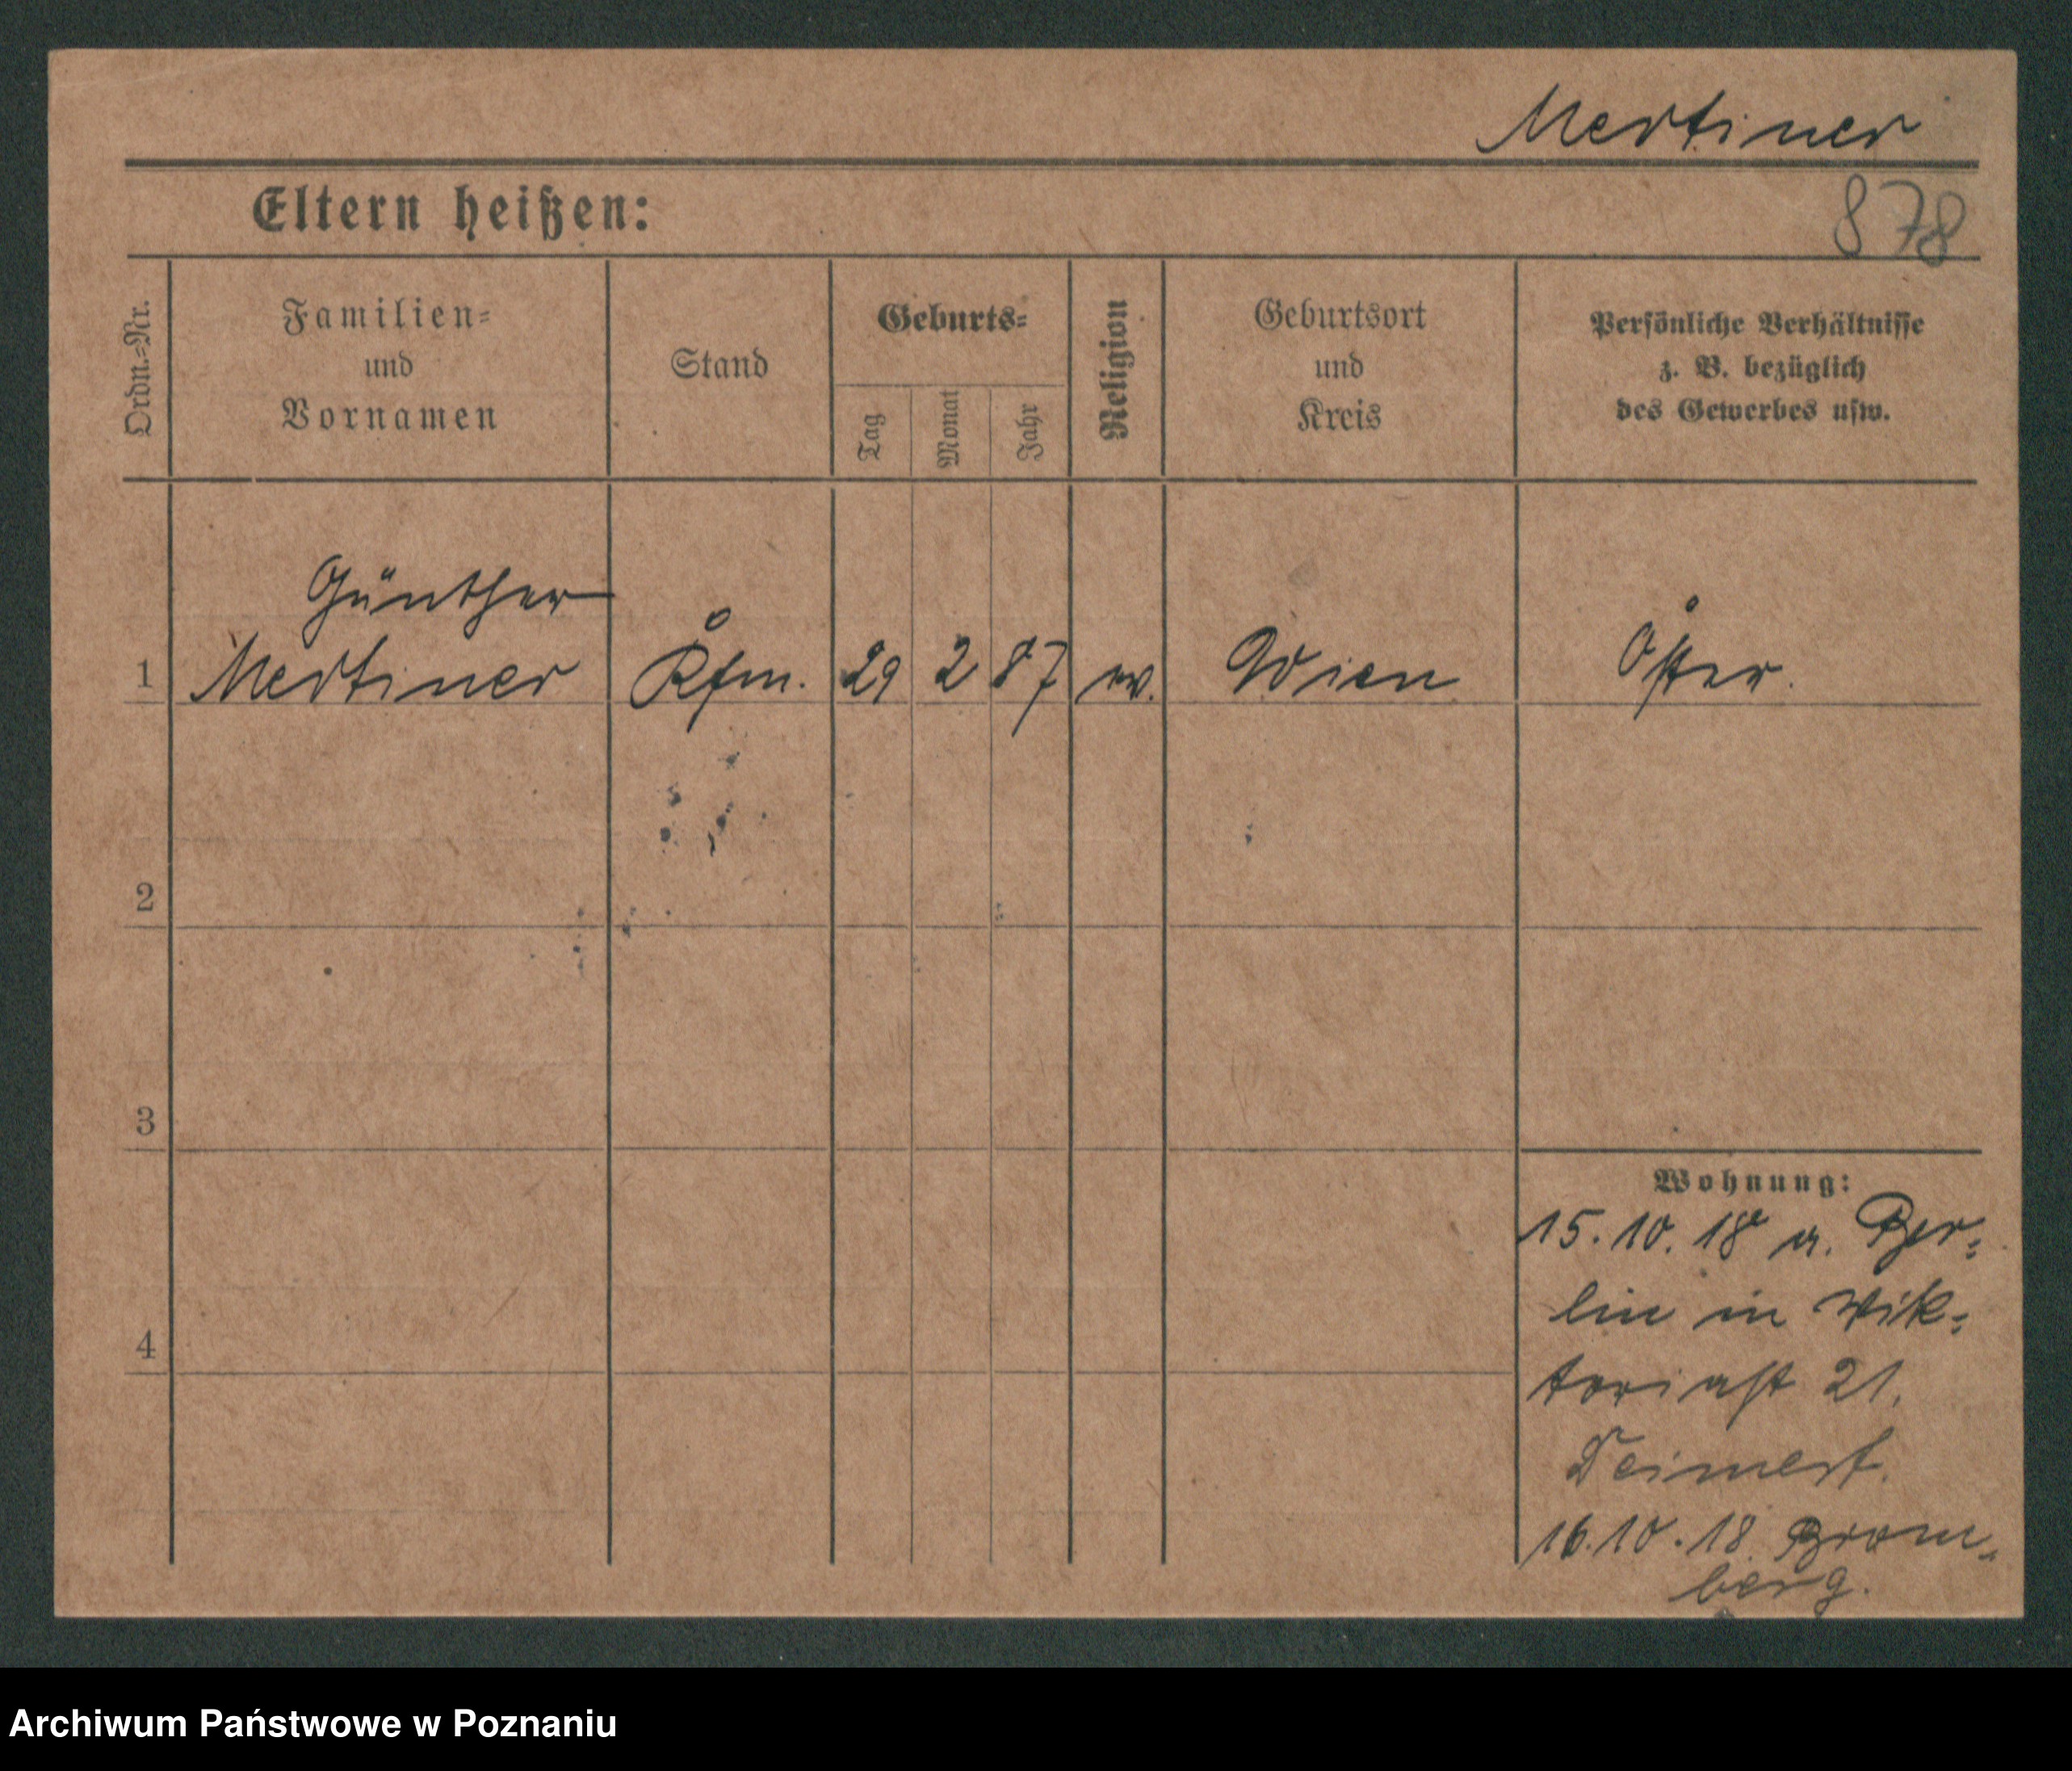 Mertiner
Eltern heißen:
878
Ordn.-Nr.
Familien-
und
Vornamen
Stand
Geburts-
Tag
Monat
Jahr
Religion
Geburtsort
und
Kreis
Persönliche Verhältnisse
z. B. bezüglich
des Gewerbes usw.
Günther
1 Mertiner Kfm. 29 2 87 ev. Wien Öster.
2
3
4
Wohnung:
15.10.18 a. Ber-
lin in Wik-
toriast 21.
16.10.18 Brom-
berg.
Archiwum Państwowe w Poznaniu